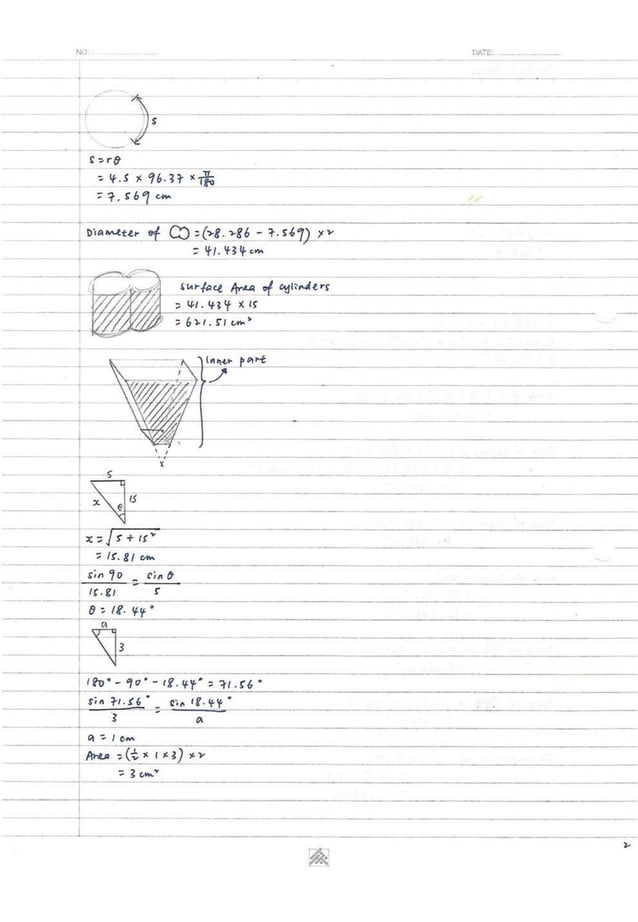 NO:
DATE:
s
s=rθ
= 4.5 × 96.37 × π/180
= 7.569 cm
Diameter of = (28.286 - 7.569) ×2
= 41.434 cm
surface Area of cylinders
= 41.434 × 15
= 621.51 cm²
Inner part
5
x θ 15
x = √5 + 15²
= 15.81 cm
sin 90/15.81 = sin θ/5
θ = 18.44°
a
3
180° - 90° - 18.44° = 71.56°
sin 71.56°/3 = sin 18.44°/a
a = 1 cm
Area = (1/2 × 1 × 3) ×2
= 3 cm²
2